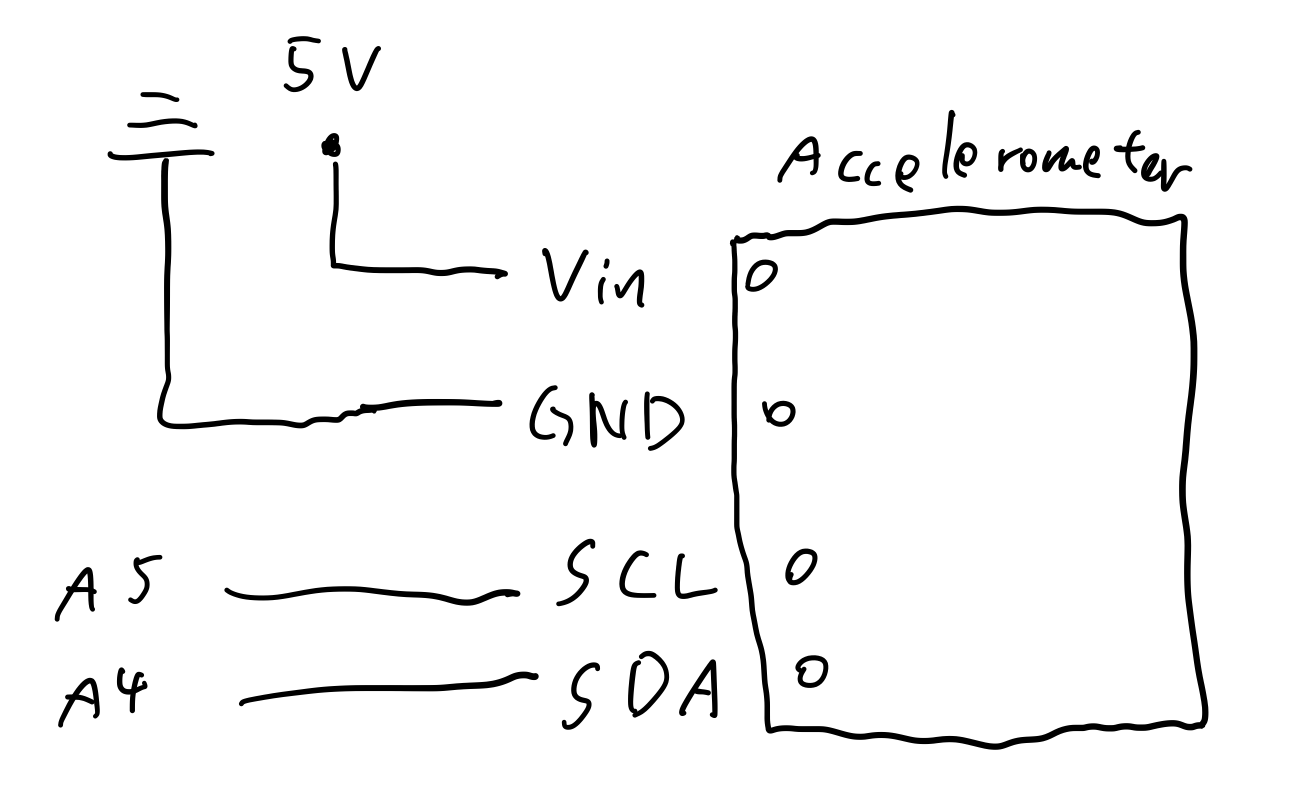 5V
Accelerometer
Vin
GND
A5 SCL
A4 SDA